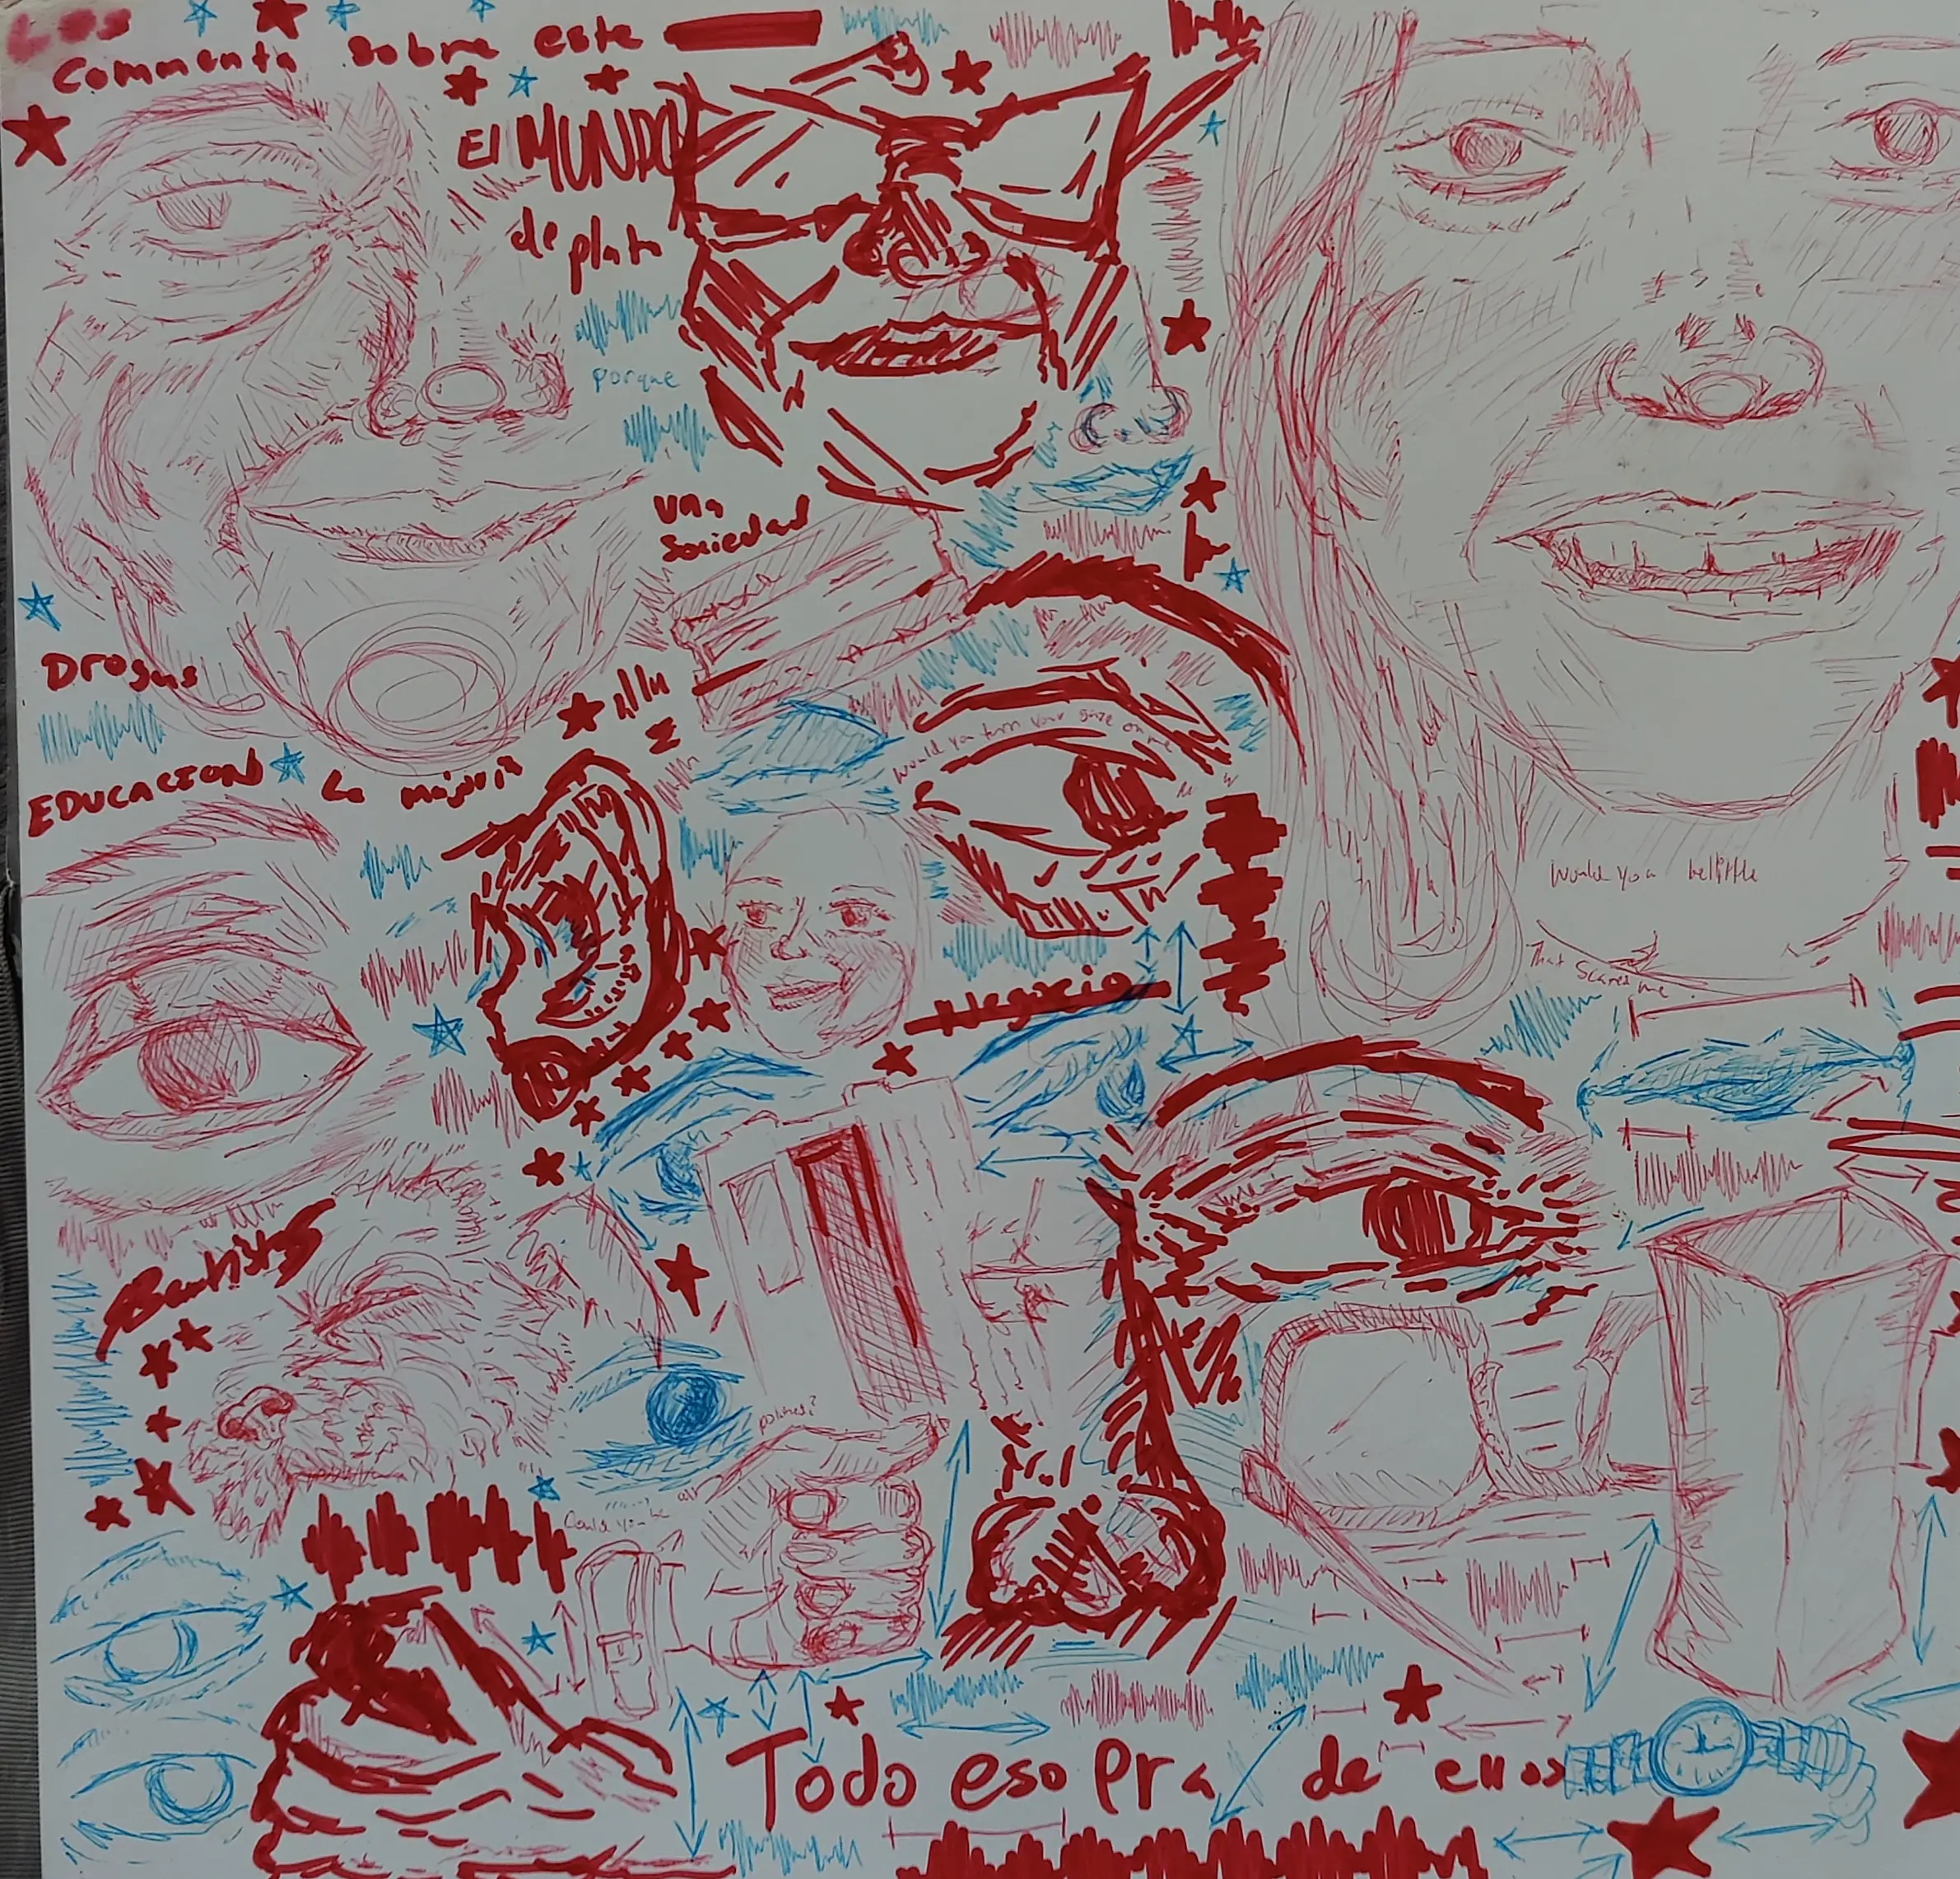 Los
Commenta sobre este
El MUNDO
de plata
porque
una
Sociedad
Drogas
EDUCACION
La mayoria
would you turn your gaze on me
Would you belittle
That scares me
Negocio
Could you be
Todo eso era de ellos